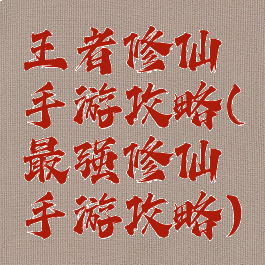 王者修仙
手游攻略(
最强修仙
手游攻略)